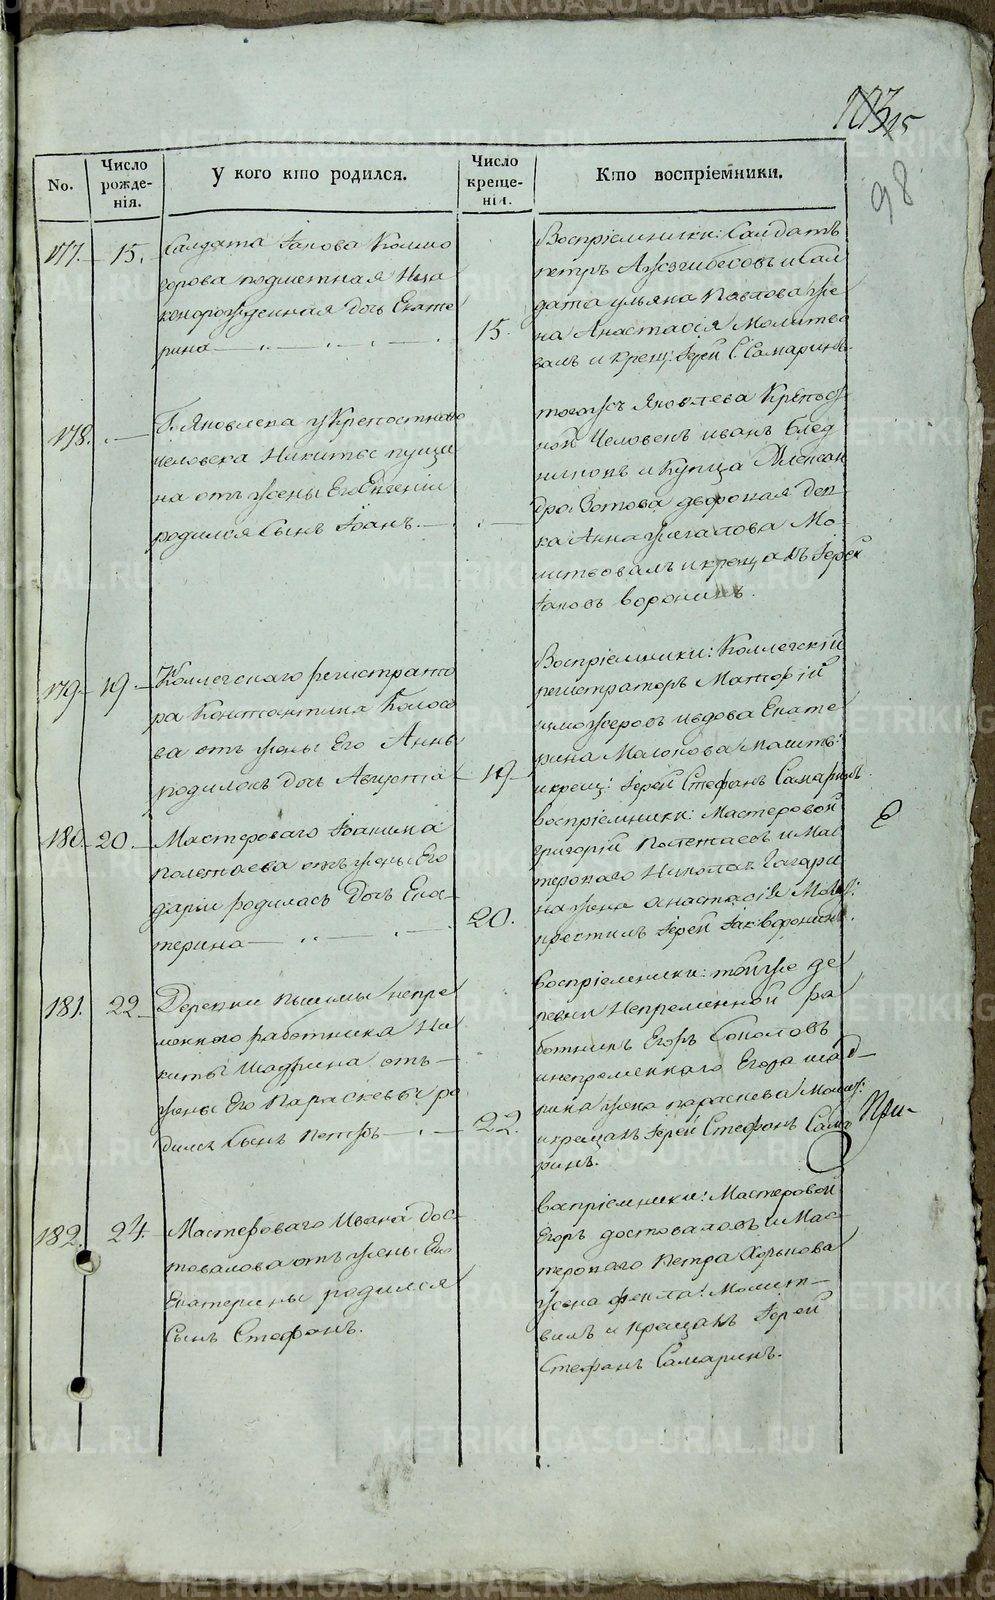 15
98
No.
Число рожде-нія.
У кого кто родился.
Число креще-нія.
Кто воспріемники.
177. 15.
Салдата Iакова Колмо
горова подметная Неза
коннорожденная дочь Екате
рина
15.
Воспріемники: Салдатъ
петръ и Сал
дата ульяна Павлова же
на Анастасія Молитво
валъ и крещ: Iерей С: Самаринъ
178. —
Г. Яковлева у Крепостнаго
человека Никиты пущи
на отъ жены Его Евгении
родился Сынъ Iоанъ.
тогожъ Яковлева Крепост
ной Человекъ иванъ
и Купца Алексан
дра Зотова дворовая дев
ка Анна Мо
литвовалъ и крещалъ Iерей
Iаковъ воронинъ.
179 19
Коллегскаго регистрато
ра Константина Колосо
ва отъ жены Его Анны
родилась дочь Августа
19
Воспріемники: Коллегскій
регистраторъ Матфій
и вдова Екате
рина Малокова Молитв:
и крещ: Iерей Стефанъ Самаринъ.
180. 20.
Мастероваго Iоанина
полетаева отъ жены Его
дарьи родилась дочь Ека
терина
20.
воспріемники: Мастеровой
григорій Полетаевъ и Мас
тероваго Николая Гагари
на жена анастасія Молит:
крестилъ Iерей Iак: воронинъ.
181. 22
Деревни пышмы непре
меннаго работника Ни
киты Шадрина отъ
жены Его Параскевы ро
дился Сынъ Петръ
22.
воспріемники: тойже де
ревни Непременной ра
ботникъ Егоръ Соколовъ
и непременнаго Егора шад
рина жена параскева Молит:
и крещалъ Iерей Стефанъ Сама
ринъ.
При-
182. 24.
Мастероваго Ивана дос
товалова отъ жены Его
Екатерины родился
Сынъ Стефанъ.
воспріемники: Мастеровой
Егоръ достоваловъ и Мас
тероваго Петра Харькова
жена фекла: Молит
вилъ и крещалъ Iерей
Стефанъ Самаринъ.
METRIKI.GASO-URAL.RU